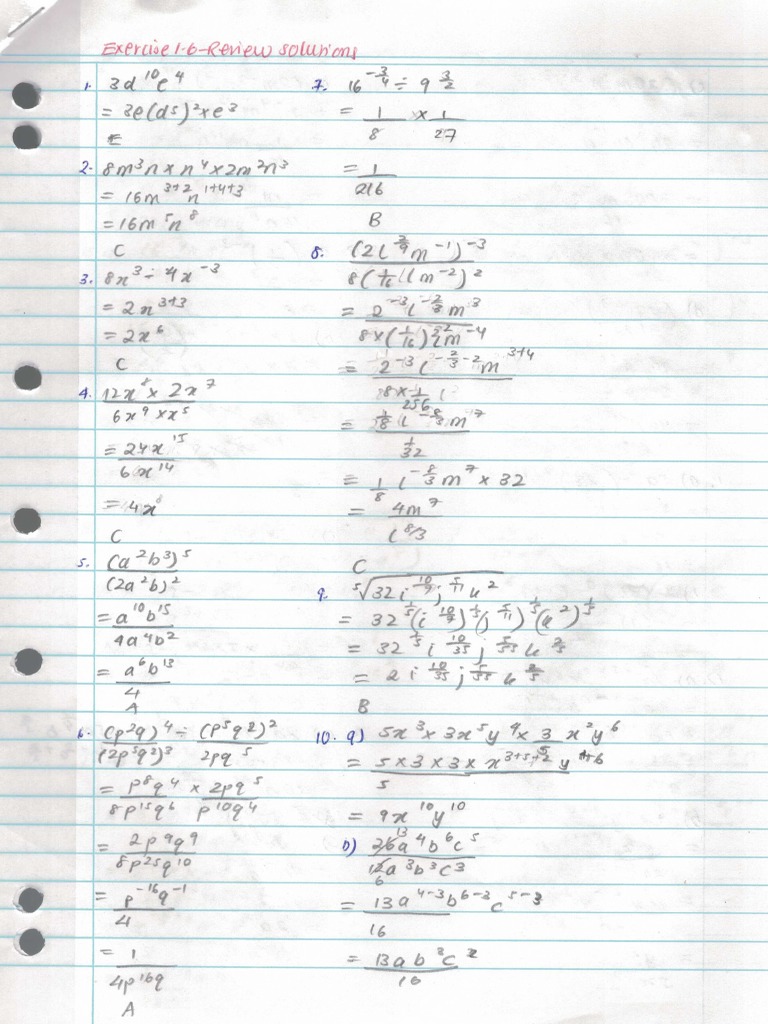 Exercise 1.6-Review solutions
1. 3d^10 e^4
= 3e(d^5)^2 × e^3
E
2. 8m^3n × n^4 × 2m^2n^3
= 16m^(3+2) n^(1+4+3)
= 16m^5n^8
C
3. 8x^3 ÷ 4x^-3
= 2x^(3+3)
= 2x^6
C
4. 12x^8 × 2x^7 / 6x^9 × x^5
= 24x^15 / 6x^14
= 4x
C
5. (a^2b^3)^5 / (2a^2b)^2
= a^10b^15 / 4a^4b^2
= a^6b^13 / 4
A
6. (p^2q)^4 / (2p^5q^2)^3 ÷ (p^5q^2)^2 / 2pq^5
= p^8q^4 / 8p^15q^6 × 2pq^5 / p^10q^4
= 2p^9q^9 / 8p^25q^10
= p^-16q^-1 / 4
= 1 / 4p^16q
A
7. 16^(-3/4) ÷ 9^(3/2)
= 1/8 × 1/27
= 1/216
B
8. (2l^(2/9)m^-1)^-3 / 8(1/16 lm^-2)^2
= 2^-3 l^(-2/3) m^3 / 8×(1/16)^2 l^2 m^-4
= 2^-3 l^(-2/3-2) m^(3+4) / 8×1/256
= 1/8 l^(-8/3) m^7 / 1/32
= 1/8 l^(-8/3) m^7 × 32
= 4m^7 / l^(8/3)
C
9. 5√(32 i^(10/7) j^(5/11) k^2)
= 32^(1/5) (i^(10/7))^(1/5) (j^(5/11))^(1/5) (k^2)^(1/5)
= 32^(1/5) i^(10/35) j^(5/55) k^(2/5)
= 2 i^(10/35) j^(5/55) k^(2/5)
B
10. a) 5x^3 × 3x^5y^4 × 3/5 x^2y^6
= 5 × 3 × 3 × x^(3+5+2) y^(4+6) / 5
= 9x^10y^10
b) 26a^4b^6c^5 / 12a^3b^3c^3
13
6
= 13a^(4-3) b^(6-3) c^(5-3) / 16
= 13ab^3c^2 / 16